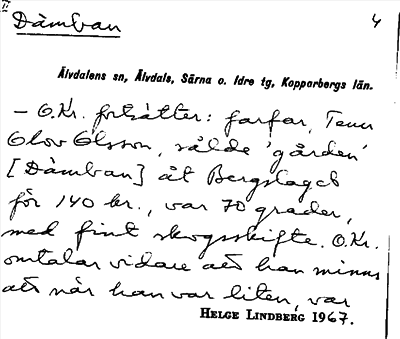 II
Dämban 4
Älvdalens sn, Älvdals, Särna o. Idre tg, Kopparbergs län.
— O.Kr. fortsätter: farfar,
Olov Olsson, sålde 'gården'
[Dämban] åt Bergslaget
för 140 kr., var 70 grader,
med fint skogsskifte. O.Kr.
omtalar vidare att han minns
att när han var liten, var
HELGE LINDBERG 1967.